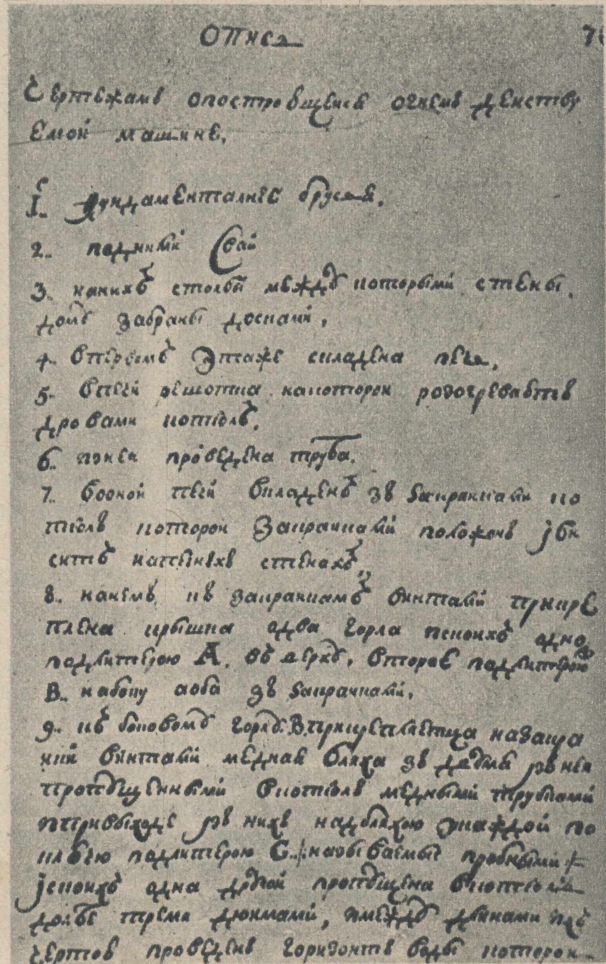 Описа 7
Чертежамъ опостроющеися огнемъ действу
емой машине.
1. фундаменталные брусья.
2. подный свай
3. на нихъ столбы между которыми стены
домъ забраны досками,
4. въпервомъ этаже складена печь,
5. въпечи решотка накоторои розогреваютъ
дровами котелъ.
6. изнеи проведена труба.
7. вооной печи вкладенъ зъ закраинами ко
телъ которои закраинами положенъ
ситъ напечныхъ стенахъ,
8. кнему къ закраинамъ винтами прикре
плена крышка одва горла исконхъ одно
подлитерою А. въ верху, второе подлитерою
В. набоку аоба зъ закраинами,
9. къ боковому горлу В прикрепляетца назакра
ини винтами медная бляха зъ двемя въ неи
пропущенными вкотелъ медными трубами
привыходе въ нихъ надбляхою укаждой по
подлитерою С. называемые пробными
искоихъ одна другой пропущена вкотелъ
доле тремя дюимами, между
чертою проведенъ горизонтъ воды которои